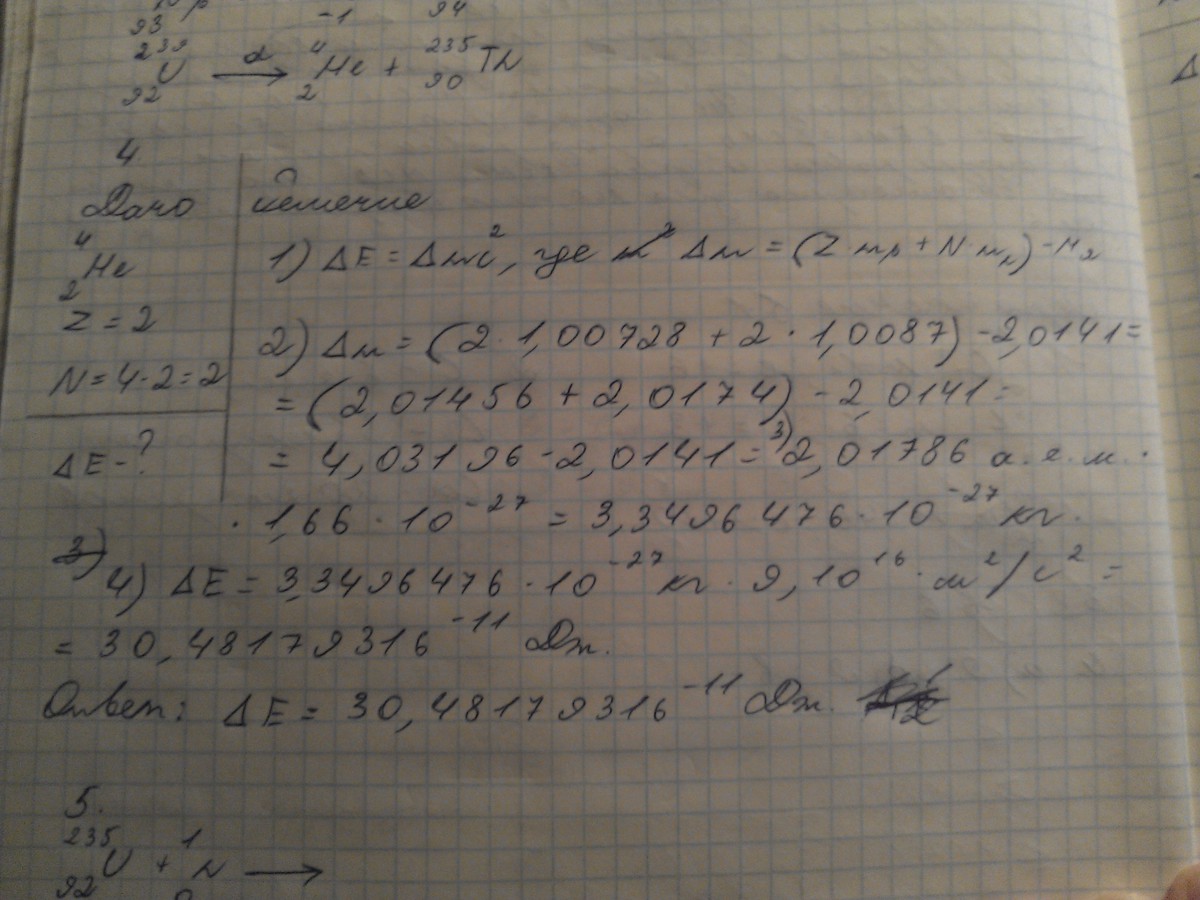 93 -1 94
239 92 U α→ 4 2 He + 235 90 Th
4
Дано Решение
4 2 He
Z = 2
1) ΔE = Δmc², где Δm = (Z·mp + N·mn) - Mя
N = 4-2 = 2
2) Δm = (2·1,00728 + 2·1,0087) - 2,0141 =
= (2,01456 + 2,0174) - 2,0141 =
ΔE - ?
= 4,03196 - 2,0141 = 3) 2,01786 а.е.м. ·
· 1,66 · 10⁻²⁷ = 3,3496476 · 10⁻²⁷ кг.
3)
4) ΔE = 3,3496476 · 10⁻²⁷ кг · 9,10¹⁶ · м²/с² =
= 30,48179316⁻¹¹ Дж.
Ответ: ΔE = 30,48179316⁻¹¹ Дж.
5.
235 92 U + 1 0 N →